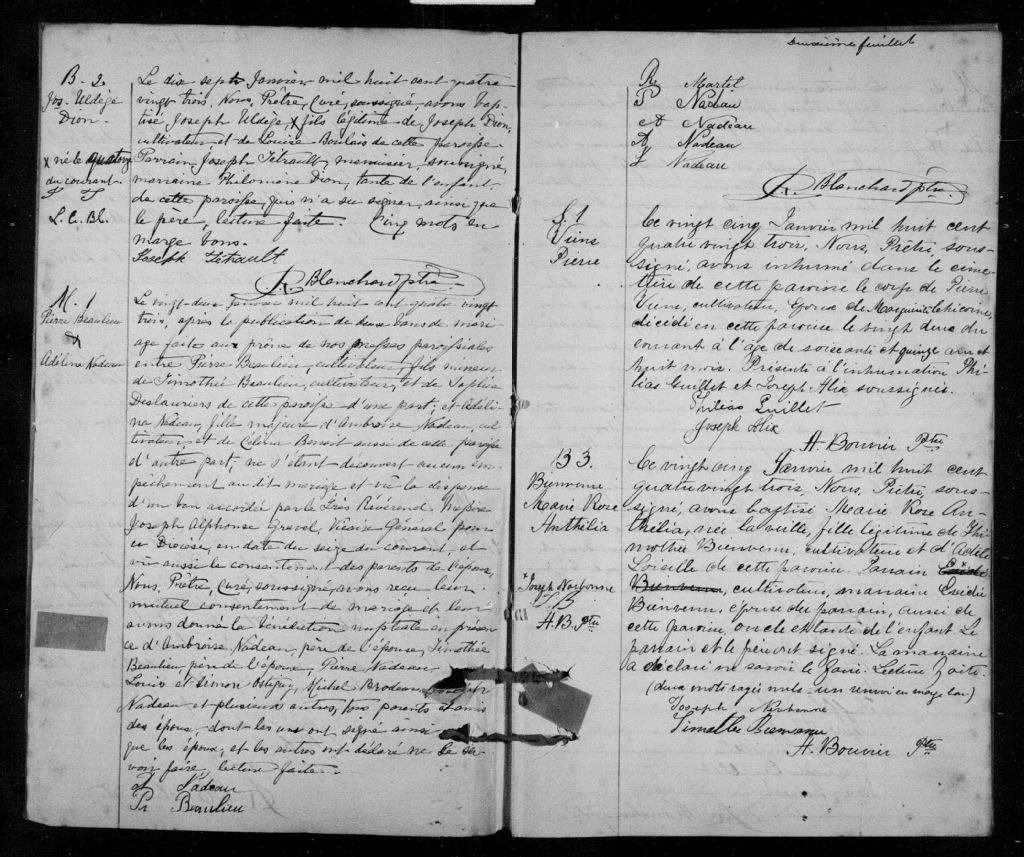 B. 2.
Jos. Uldège
Dion.
x né le quatorze
du courant.
L. C. Bl.
Le dix sept Janvier mil huit cent quatre
vingt trois, Nous, Prêtre, Curé, soussigné, avons bap-
tisé, Joseph Uldège, x fils légitime de Joseph Dion,
cultivateur et de Louise Boulais de cette paroisse
Parrain, Joseph Tétrault, menuisier, soussigné,
marraine Philomène Dion, tante de l'enfant
de cette paroisse, qui n'a su signer, ainsi que
le père, lecture faite. Cinq mots en
marge bons.
Joseph Tétrault
Blanchard ptre.
M. 1
Pierre Beaulieu
&
Adélina Nadeau
Le vingt-deux Janvier mil huit cent quatre vingt
trois, après la publication de deux bans de mari-
age faite aux prône de nos messes paroissiales
entre Pierre Beaulieu, cultivateur, fils mineur
de Timothée Beaulieu, cultivateur, et de Sophie
Deslauriers de cette paroisse d'une part; et Adéli-
na Nadeau, fille majeure d'Ambroise Nadeau, cul-
tivateur, et de Célina Benoit aussi de cette paroisse
d'autre part; ne s'étant découvert aucun em-
pêchement au dit mariage et vu la dispense
d'un ban accordée par le Très Révérend Messire
Joseph Alphonse Gravel, Vicaire Général pour
ce Diocèse, en date du seize du courant, et
vu aussi le consentement des parents de l'époux,
Nous, Prêtre, Curé, soussigné, avons reçu leur
mutuel consentement de mariage et leur
avons donné la bénédiction nuptiale en présen-
ce d'Ambroise Nadeau, père de l'épouse, Timothée
Beaulieu, père de l'époux, Pierre Nadeau,
Louis et Simon Ostigny, Michel Brodeur,
Nadeau et plusieurs autres, tous parents et amis
des époux, dont les uns ont signé ainsi
que les époux, et les autres ont déclaré ne le sa-
voir faire, lecture faite.
A Nadeau
Pr Beaulieu
Deuxième feuillet
Martel
P Nadeau
A Nadeau
Nadeau
Nadeau
Blanchard ptre.
S. 1
Viens
Pierre
Ce vingt cinq Janvier mil huit cent
quatre vingt trois, Nous, Prêtre, sous-
signé, avons inhumé dans le cime-
tière de cette paroisse le corps de Pierre
Viens, cultivateur, Epoux de Marguerite
décédé en cette paroisse le vingt deux du
courant à l'âge de soixante et quinze ans et
huit mois. Présents à l'inhumation Phi-
lias Guillet et Joseph Alix soussignés.
Philias Guillet
Joseph Alix
A. Bouvier Ptre
B 3.
Bienvenu
Marie Rose
Anthilia
x Joseph Narbonne
A. B. Ptre
Ce vingt cinq Janvier mil huit cent
quatre vingt trois, Nous, Prêtre, sous-
signé, avons baptisé Marie Rose An-
thilia, née la veille, fille légitime de Thi-
mothée Bienvenu, cultivateur et d'Adèle
Loiselle de cette paroisse. Parrain
Bienvenu, cultivateur, marraine Exidie
Bienvenu, épouse du parrain, aussi de
cette paroisse, oncle et tante de l'enfant. Le
parrain et le père ont signé. La marraine
a déclaré ne savoir le faire. Lecture faite.
(deux mots rayés nuls un renvoi en marge bon)
Joseph Narbonne
Timothé Bienvenu
A. Bouvier Ptre